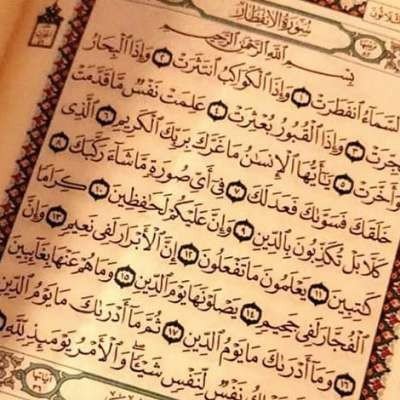 سُورَةُ الِانفِطَارِ
بِسْمِ اللَّهِ الرَّحْمَٰنِ الرَّحِيمِ
السَّمَاءُ انفَطَرَتْ ١ وَإِذَا الْكَوَاكِبُ انتَثَرَتْ ٢ وَإِذَا الْبِحَارُ
فُجِّرَتْ ٣ وَإِذَا الْقُبُورُ بُعْثِرَتْ ٤ عَلِمَتْ نَفْسٌ مَّا قَدَّمَتْ
وَأَخَّرَتْ ٥ يَا أَيُّهَا الْإِنسَانُ مَا غَرَّكَ بِرَبِّكَ الْكَرِيمِ ٦ الَّذِي
خَلَقَكَ فَسَوَّاكَ فَعَدَلَكَ ٧ فِي أَيِّ صُورَةٍ مَّا شَاءَ رَكَّبَكَ ٨
كَلَّا بَلْ تُكَذِّبُونَ بِالدِّينِ ٩ وَإِنَّ عَلَيْكُمْ لَحَافِظِينَ ١٠ كِرَامًا
كَاتِبِينَ ١١ يَعْلَمُونَ مَا تَفْعَلُونَ ١٢ إِنَّ الْأَبْرَارَ لَفِي نَعِيمٍ ١٣ وَإِنَّ
الْفُجَّارَ لَفِي جَحِيمٍ ١٤ يَصْلَوْنَهَا يَوْمَ الدِّينِ ١٥ وَمَا هُمْ عَنْهَا بِغَائِبِينَ
١٦ وَمَا أَدْرَاكَ مَا يَوْمُ الدِّينِ ١٧ ثُمَّ مَا أَدْرَاكَ مَا يَوْمُ الدِّينِ
نَفْسٌ لِّنَفْسٍ شَيْئًا وَالْأَمْرُ يَوْمَئِذٍ لِّلَّهِ